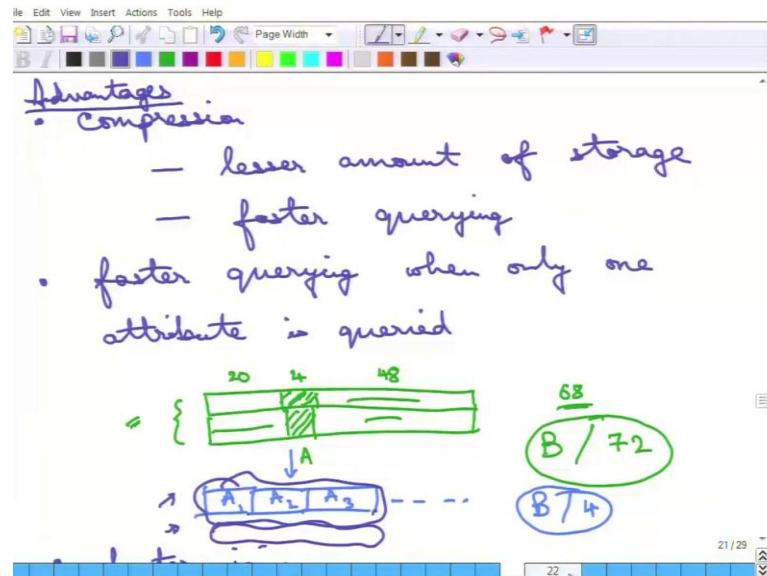 ile Edit View Insert Actions Tools Help
Page Width
B I
Advantages
• Compression
— lesser amount of storage
— faster querying
• faster querying when only one
attribute is queried
20 4 48
68
B / 72
A
A1 A2 A3 - - - -
B / 4
21 / 29
22